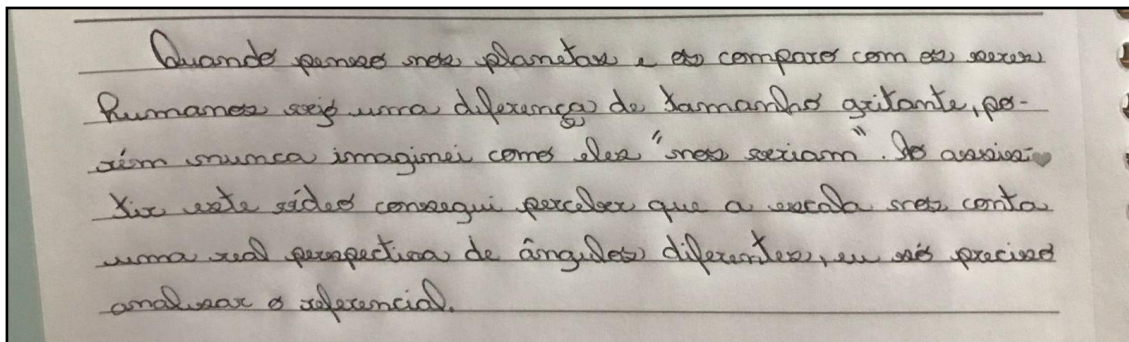 Quando penso nos planetas e os comparo com os seres
humanos vejo uma diferença de tamanho gritante, po-
rém nunca imaginei como eles "nos veriam". Ao assis-
tir este vídeo consegui perceber que a escala nos conta
uma real perspectiva de ângulos diferentes, eu só preciso
analisar o referencial.